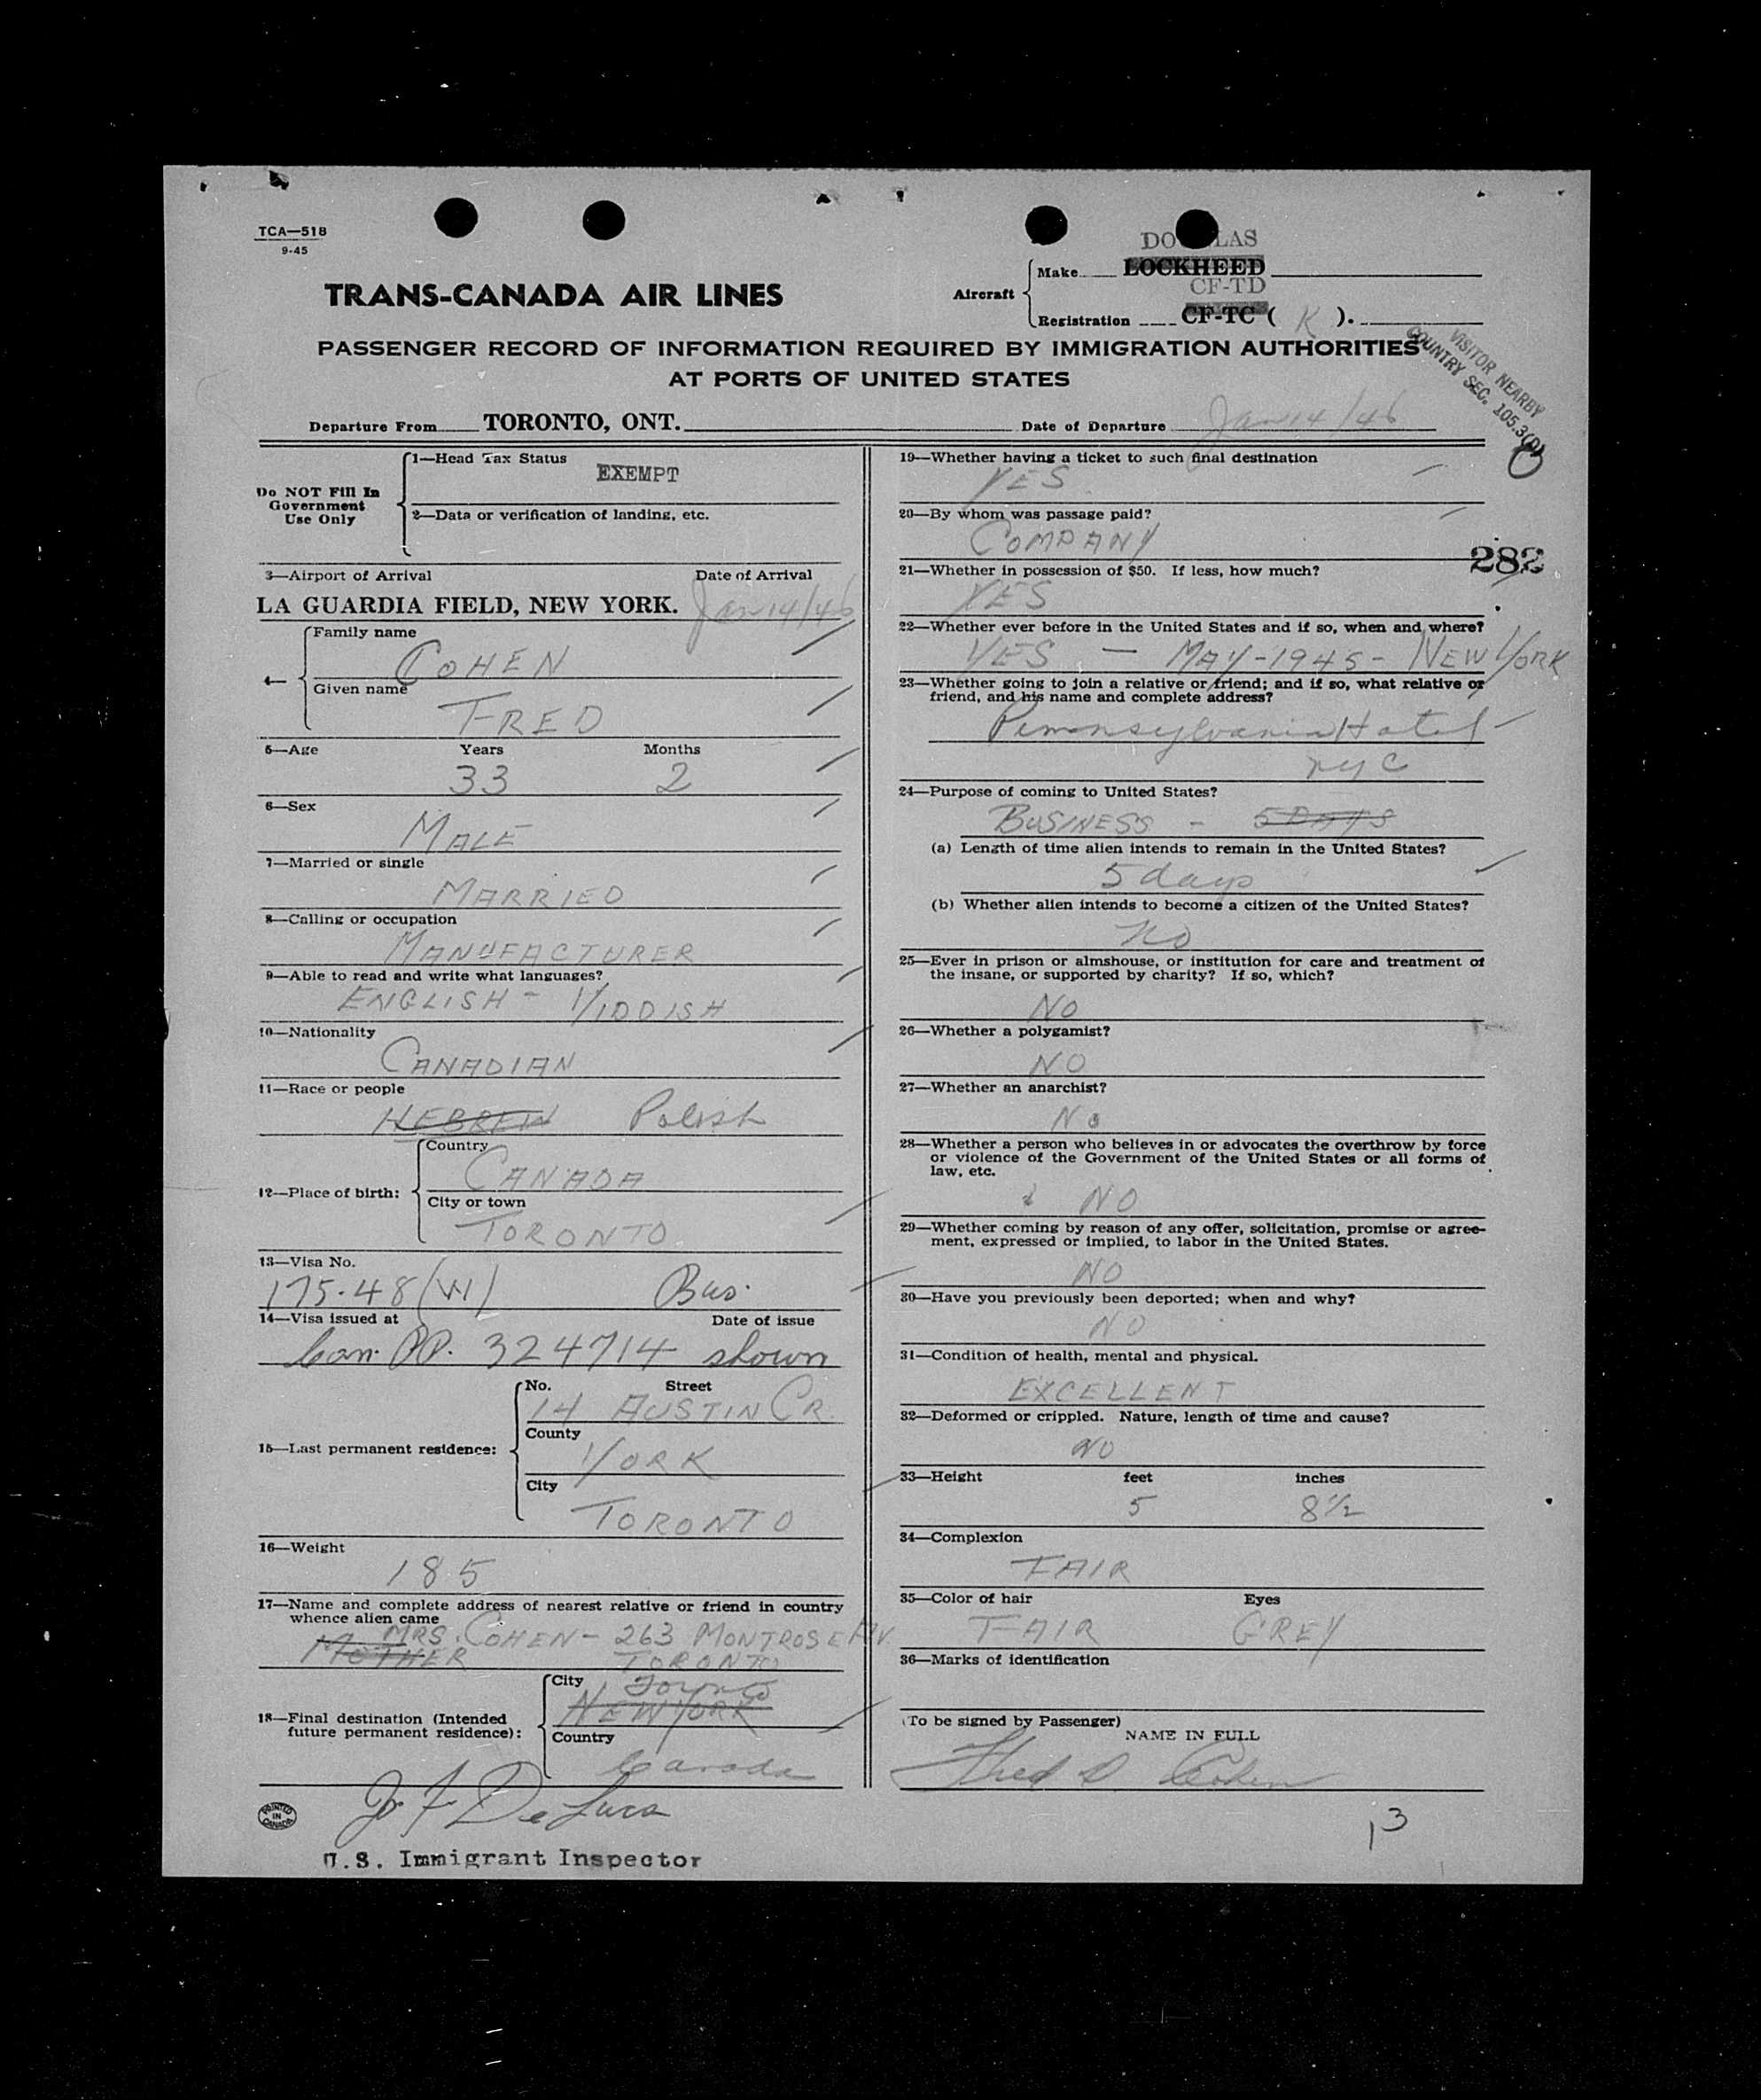 TCA—518
9-45
TRANS-CANADA AIR LINES
Aircraft
Make
DOUGLAS
LOCKHEED
CF-TD
Registration CF-TC ( K ).
PASSENGER RECORD OF INFORMATION REQUIRED BY IMMIGRATION AUTHORITIES
AT PORTS OF UNITED STATES
VISITOR NEARBY
COUNTRY SEC. 105.3(D)
Departure From TORONTO, ONT. Date of Departure Jan 14/46
Do NOT Fill In
Government
Use Only
1—Head Tax Status
EXEMPT
2—Data or verification of landing, etc.
3—Airport of Arrival Date of Arrival
LA GUARDIA FIELD, NEW YORK. Jan 14/46
4—
Family name
COHEN
Given name
FRED
5—Age Years Months
33 2
6—Sex
MALE
7—Married or single
MARRIED
8—Calling or occupation
MANUFACTURER
9—Able to read and write what languages?
ENGLISH - YIDDISH
10—Nationality
CANADIAN
11—Race or people
HEBREW Polish
12—Place of birth:
Country
CANADA
City or town
TORONTO
13—Visa No.
175.48 (W) Bus.
14—Visa issued at Date of issue
Can. PP. 324714 shown
15—Last permanent residence:
No. Street
14 AUSTIN CR.
County
YORK
City
TORONTO
16—Weight
185
17—Name and complete address of nearest relative or friend in country
whence alien came
MRS. COHEN - 263 MONTROSE AV.
MOTHER TORONTO
18—Final destination (Intended
future permanent residence):
City Toronto
NEW YORK
Country
Canada
J F DeLuca
U.S. Immigrant Inspector
PRINTED
IN
CANADA
19—Whether having a ticket to such final destination
YES
20—By whom was passage paid?
COMPANY
282
21—Whether in possession of $50. If less, how much?
YES
22—Whether ever before in the United States and if so, when and where?
YES — MAY-1945- NEW YORK
23—Whether going to join a relative or friend; and if so, what relative or
friend, and his name and complete address?
Pennsylvania Hotel
nyc
24—Purpose of coming to United States?
BUSINESS - 5 DAYS
(a) Length of time alien intends to remain in the United States?
5 days
(b) Whether alien intends to become a citizen of the United States?
no
25—Ever in prison or almshouse, or institution for care and treatment of
the insane, or supported by charity? If so, which?
NO
26—Whether a polygamist?
NO
27—Whether an anarchist?
No
28—Whether a person who believes in or advocates the overthrow by force
or violence of the Government of the United States or all forms of
law, etc.
NO
29—Whether coming by reason of any offer, solicitation, promise or agree-
ment, expressed or implied, to labor in the United States.
NO
30—Have you previously been deported; when and why?
NO
31—Condition of health, mental and physical.
EXCELLENT
32—Deformed or crippled. Nature, length of time and cause?
NO
33—Height feet inches
5 8½
34—Complexion
FAIR
35—Color of hair Eyes
FAIR GREY
36—Marks of identification
(To be signed by Passenger)
NAME IN FULL
Fred D. Cohen
13